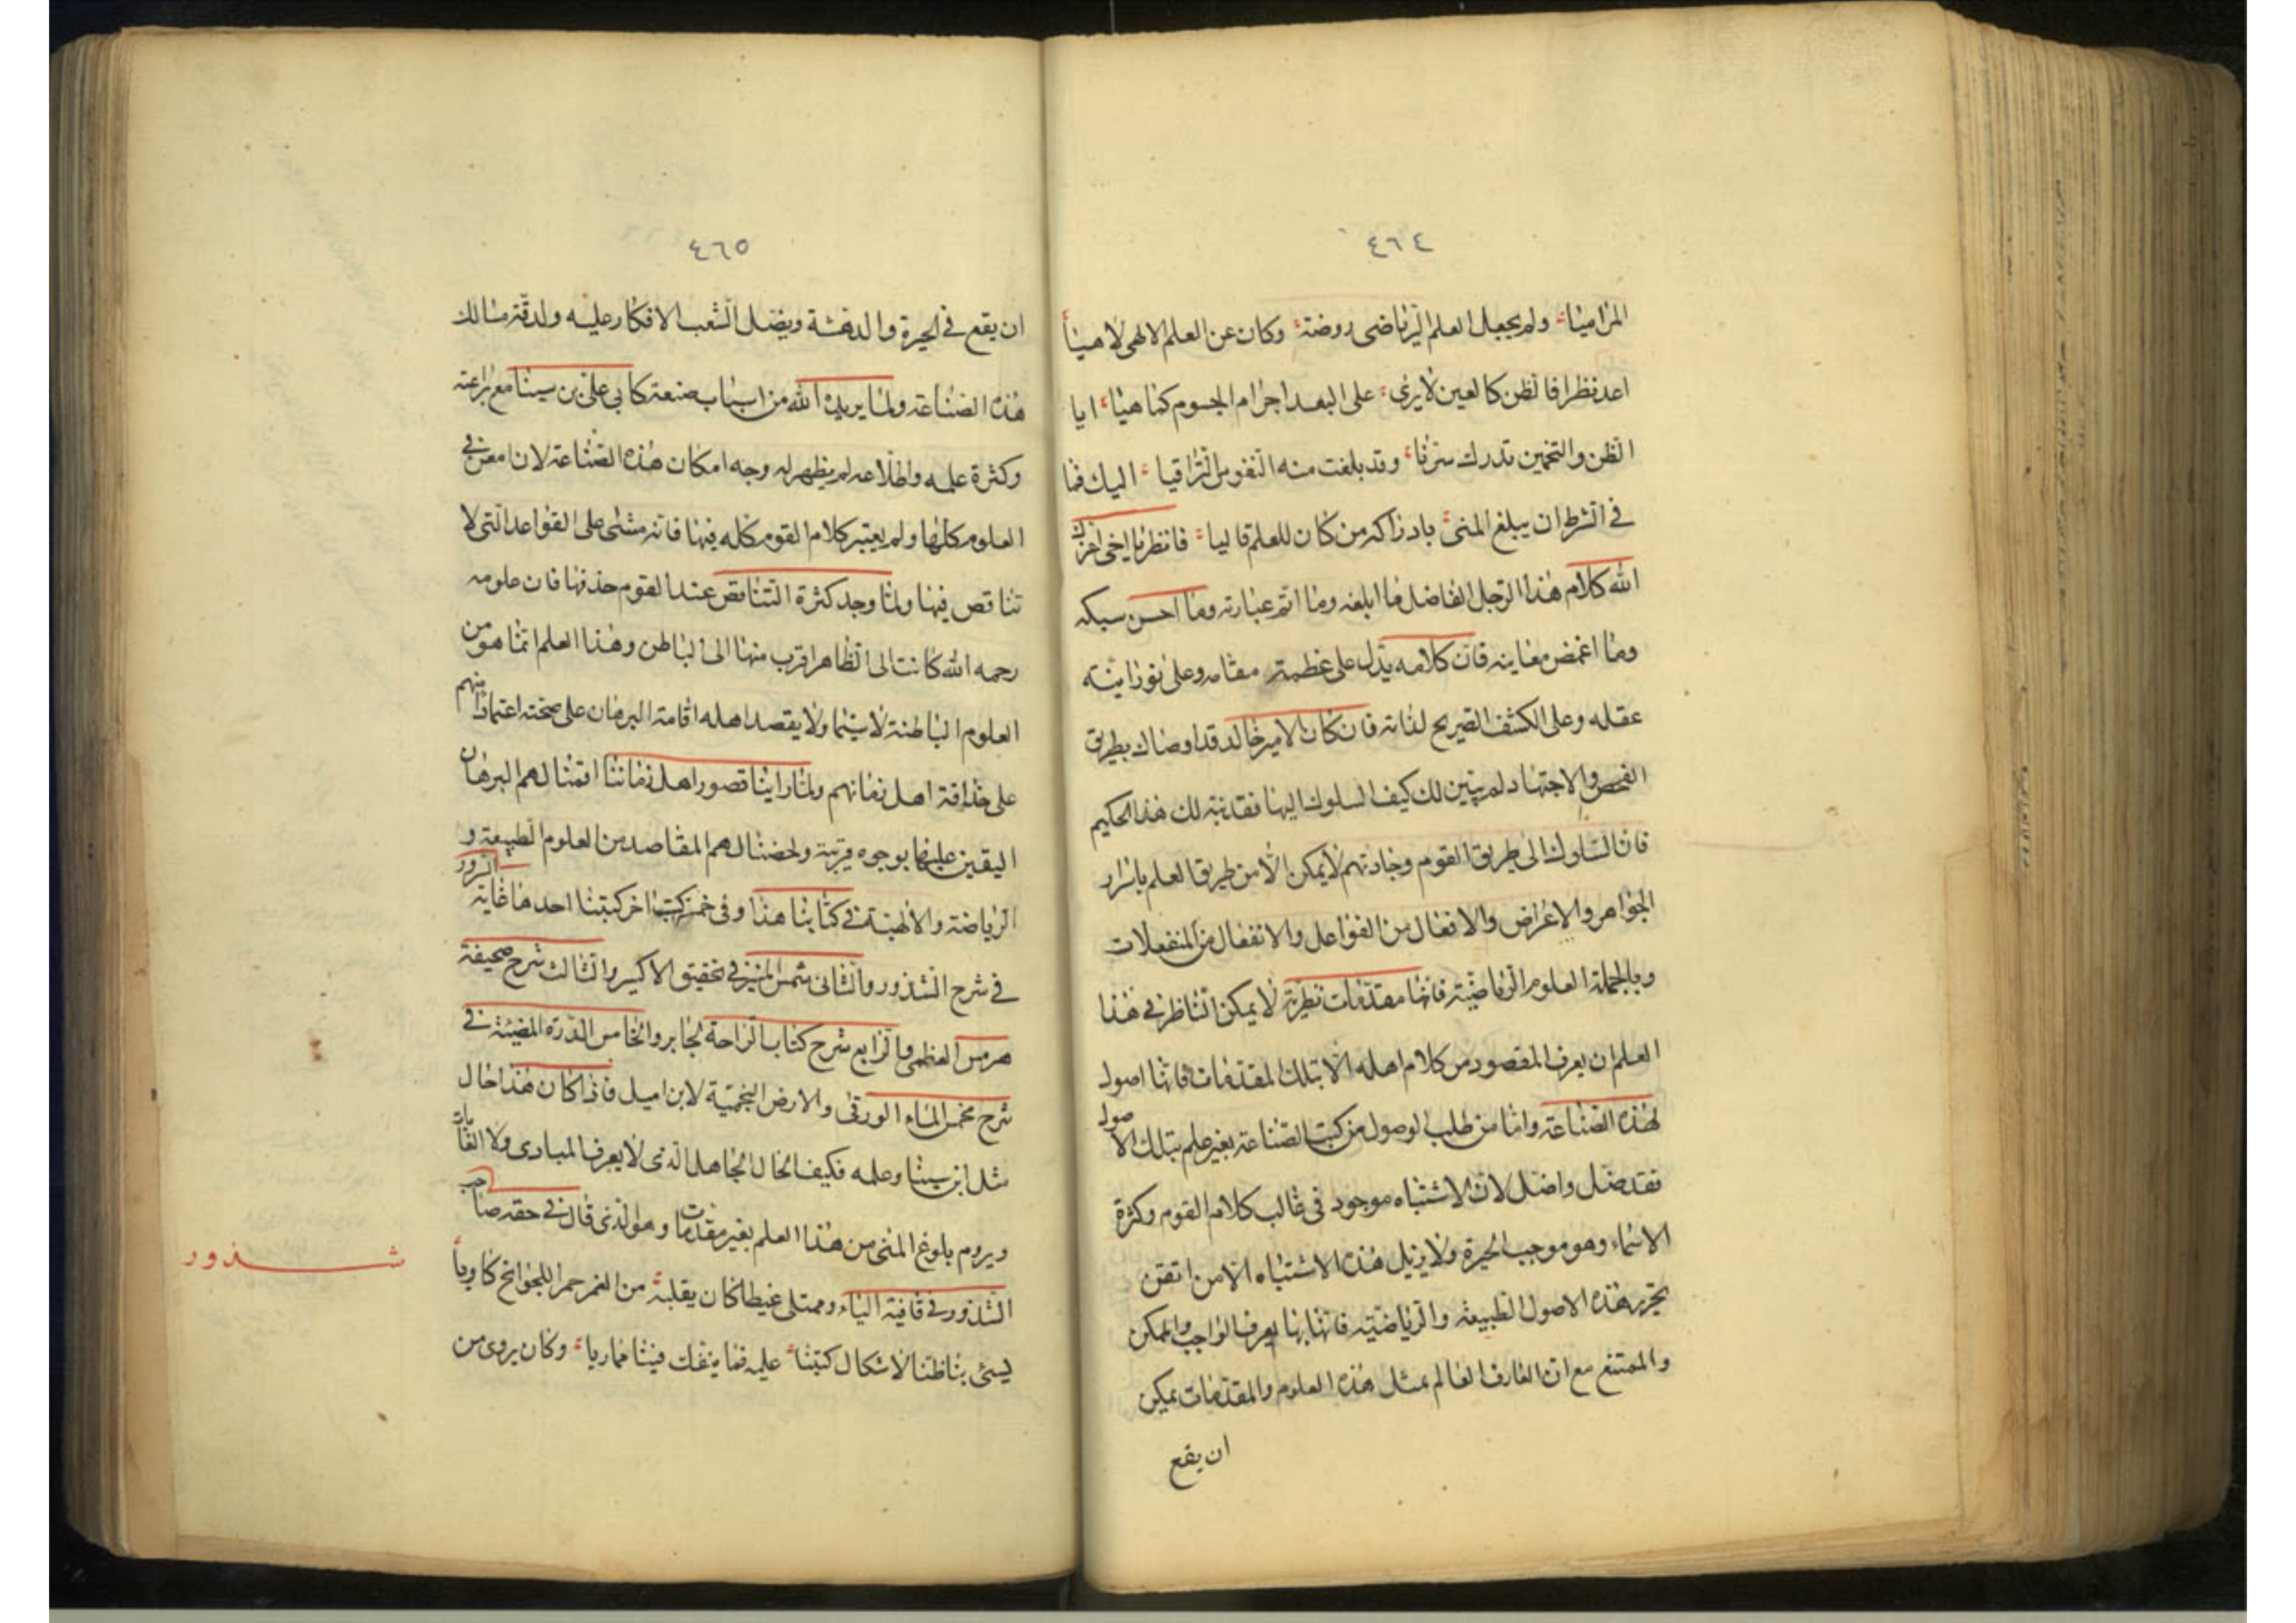 ٤٦٤
المراميا ولم يجعل العلم الرياضى روضة وكان عن العلم الالهى لاهياً
اعد نظرا فالظن كالعين لا يرى على البعد اجرام الجسوم كناهيا ايا
الظن والتخمين تدرك سرنا وقد بلغت منه النفوس التراقيا اليك فما
فى الشرط ان يبلغ المنى بادراكه من كان للعلم قاليا فانظر يا اخى اعزك
الله كلام هذا الرجل الفاضل ما ابلغه وما اتم عبارته وما احسن سبكه
وما اغمض معاينه فان كلامه يدل على عظمة مقامه وعلى نورانية
عقله وعلى الكشف الصريح لذاته فان كان الامير خالد قد اوصاك بطريق
الفحص والاجتهاد لم يبين لك كيف السلوك اليها فقد نبه لك هذا الحكيم
فان السلوك الى طريق القوم وجادتهم لا يمكن الا من طريق العلم باسرار
الجواهر والاعراض والافعال من الفواعل والانفعال من المنفعلات
وبالجملة العلوم الرياضية فانها مقدمات نظرية لا يمكن الناظر فى هذا
العلم ان يعرف المقصود من كلام اهله الا بتلك المقدمات فانها اصول
لهذه الصناعة واما من طلب الوصول من كتب الصناعة بغير علم بتلك الاصول
فقد ضل واضل لان الاشتباه موجود فى قالب كلام القوم وكثرة
الاسماء وهو موجب الحيرة ولا يزيل هذه الاشتباه الا من اتقن
تحرير هذه الاصول الطبيعة والرياضية فانها بها يعرف الواجب والممكن
والممتنع مع ان العارف العالم بمثل هذه العلوم والمقدمات يمكن
ان يقع
٤٦٥
ان يقع فى الحيرة والدهشة ويضل الشعب الافكار عليه ولدقة مسالك
هذه الصناعة ولما يريده الله من اسباب صنعة كابى على بن سينا مع براعته
وكثرة علمه واطلاعه لم يظهر له وجه امكان هذه الصناعة لان امعن فى
العلوم كلها ولم يعتبر كلام القوم كله فيها فانه مشى على القواعد التى لا
تناقص فيها ولما وجد كثرة التناقص عند القوم حذفها فان علومه
رحمه الله كانت الى الظاهر اقرب منها الى الباطن وهذا العلم انما هو من
العلوم الباطنة لا سيما ولا يقصد اهله اقامة البرهان على صحته اعتمادا منهم
على حذاقة اهل زمانهم ولما راينا قصور اهل زماننا اقمنا لهم البرهان
اليقين عليها بوجوه قريبة ولخصنا لهم المقاصد من العلوم الطبيعة و
الرياضة والالهية فى كتابنا هذا وفى خمس كتب اخر كتبنا احدها غاية السرور
فى شرح الشذور والثانى شمس المنير فى تحقيق الاكسير والثالث شرح صحيفة
هرمس العظمى والرابع شرح كتاب الراحة لجابر والخامس الدرة المضيئة فى
شرح مخمس الماء الورقى والارض النجمية لابن اميل فاذا كان هذا حال
مثل ابن سينا وعلمه فكيف الحال الجاهل الذى لا يعرف المبادى ولا الغايات
ويروم بلوغ المنى من هذا العلم بغير مقدمات وهو الذى قال فى حقه صاحب
الشذور فى قافية الياء وممتلى غيظا كان بقلبه من الغمر جمرا للجوانح كاوياً
يسئ بنا ظنا لاشكال كتبنا عليه فما ينفك فينا مماريا وكان يروى من
شذور